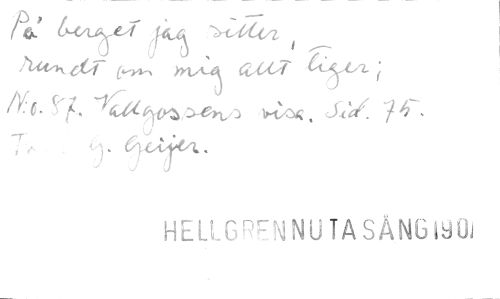 På berget jag sitter,
rundt om mig allt tiger;
N:o. 87. Vallgossens visa. Sid. 75.
G. Geijer.
HELLGREN NUTA SÅNG 1901